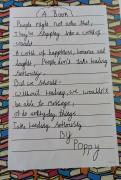 (A Book)
People might not notice that,
They're stepping into a world of
words
A world of happiness, humour and
laughter, People don't take reading
seriously.
But we should.
Without reading, we wouldn't
be able to message,
do everyday things
Take reading seriously
By
Poppy